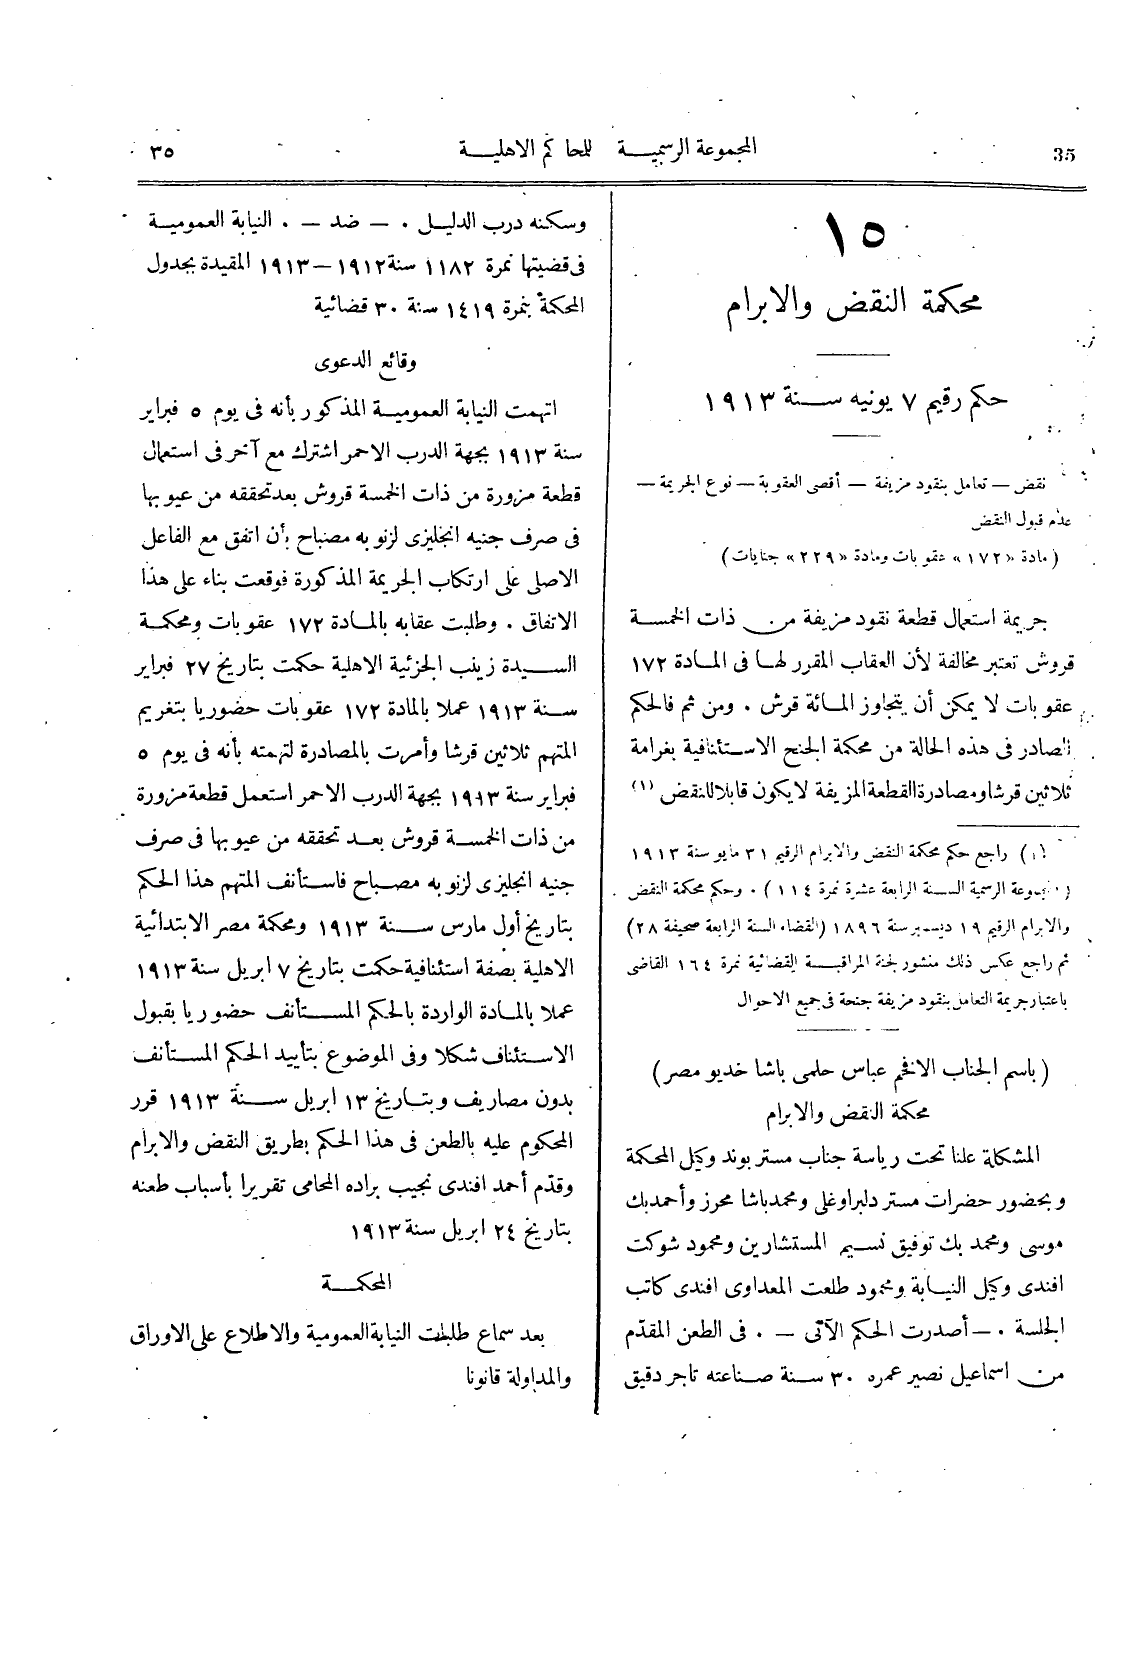 35 المجموعة الرسمية للمحاكم الاهلية ٣٥
١٥
محكمة النقض والابرام
حكم رقيم ٧ يونيه سنة ١٩١٣
نقض — تعامل بنقود مزيفة — أقصى العقوبة — نوع الجريمة —
عدم قبول النقض
(مادة «١٧٢» عقوبات ومادة «٢٢٩» جنايات)
جريمة استعمال قطعة نقود مزيفة من ذات الخمسة
قروش تعتبر مخالفة لأن العقاب المقرر لها فى المادة ١٧٢
عقوبات لا يمكن أن يتجاوز المائة قرش . ومن ثم فالحكم
الصادر فى هذه الحالة من محكمة الجنح الاستئنافية بغرامة
ثلاثين قرشا ومصادرة القطعة المزيفة لا يكون قابلا للنقض (١)
(١) راجع حكم محكمة النقض والابرام الرقيم ٣١ مايو سنة ١٩١٣
(المجموعة الرسمية السنة الرابعة عشرة نمرة ١١٤) . وحكم محكمة النقض
والابرام الرقيم ١٩ ديسمبر سنة ١٨٩٦ (القضاء السنة الرابعة صحيفة ٢٨)
ثم راجع عكس ذلك منشور لجنة المراقبة القضائية نمرة ١٦٤ القاضى
باعتبار جريمة التعامل بنقود مزيفة جنحة فى جميع الاحوال
(باسم الجناب الافخم عباس حلمى باشا خديو مصر)
محكمة النقض والابرام
المشكلة علنا تحت رياسة جناب مستر بوند وكيل المحكمة
وبحضور حضرات مستر دلبراوغلى ومحمد باشا محرز وأحمد بك
موسى ومحمد بك توفيق نسيم المستشارين ومحمود شوكت
افندى وكيل النيابة ومحمود طلعت المعداوى افندى كاتب
الجلسة . — أصدرت الحكم الآتى — . فى الطعن المقدّم
من اسماعيل نصير عمره ٣٠ سنة صناعته تاجر دقيق
وسكنه درب الدليل . — ضد — . النيابة العمومية
فى قضيتها نمرة ١١٨٢ سنة ١٩١٢ — ١٩١٣ المقيدة بجدول
المحكمة بنمرة ١٤١٩ سنة ٣٠ قضائية
وقائع الدعوى
اتهمت النيابة العمومية المذكور بأنه فى يوم ٥ فبراير
سنة ١٩١٣ بجهة الدرب الاحمر اشترك مع آخر فى استعمال
قطعة مزورة من ذات الخمسة قروش بعد تحققه من عيوبها
فى صرف جنيه انجليزى لزنوبه مصباح بأن اتفق مع الفاعل
الاصلى على ارتكاب الجريمة المذكورة فوقعت بناء على هذا
الاتفاق . وطلبت عقابه بالمادة ١٧٢ عقوبات ومحكمة
السيدة زينب الجزئية الاهلية حكمت بتاريخ ٢٧ فبراير
سنة ١٩١٣ عملا بالمادة ١٧٢ عقوبات حضوريا بتغريم
المتهم ثلاثين قرشا وأمرت بالمصادرة لتهمته بأنه فى يوم ٥
فبراير سنة ١٩١٣ بجهة الدرب الاحمر استعمل قطعة مزورة
من ذات الخمسة قروش بعد تحققه من عيوبها فى صرف
جنيه انجليزى لزنوبه مصباح فاستأنف المتهم هذا الحكم
بتاريخ أول مارس سنة ١٩١٣ ومحكمة مصر الابتدائية
الاهلية بصفة استئنافية حكمت بتاريخ ٧ ابريل سنة ١٩١٣
عملا بالمادة الواردة بالحكم المستأنف حضوريا بقبول
الاستئناف شكلا وفى الموضوع بتأييد الحكم المستأنف
بدون مصاريف وبتاريخ ١٣ ابريل سنة ١٩١٣ قرر
المحكوم عليه بالطعن فى هذا الحكم بطريق النقض والابرام
وقدّم أحمد افندى نجيب براده المحامى تقريرا بأسباب طعنه
بتاريخ ٢٤ ابريل سنة ١٩١٣
المحكمة
بعد سماع طلبات النيابة العمومية والاطلاع على الاوراق
والمداولة قانونا